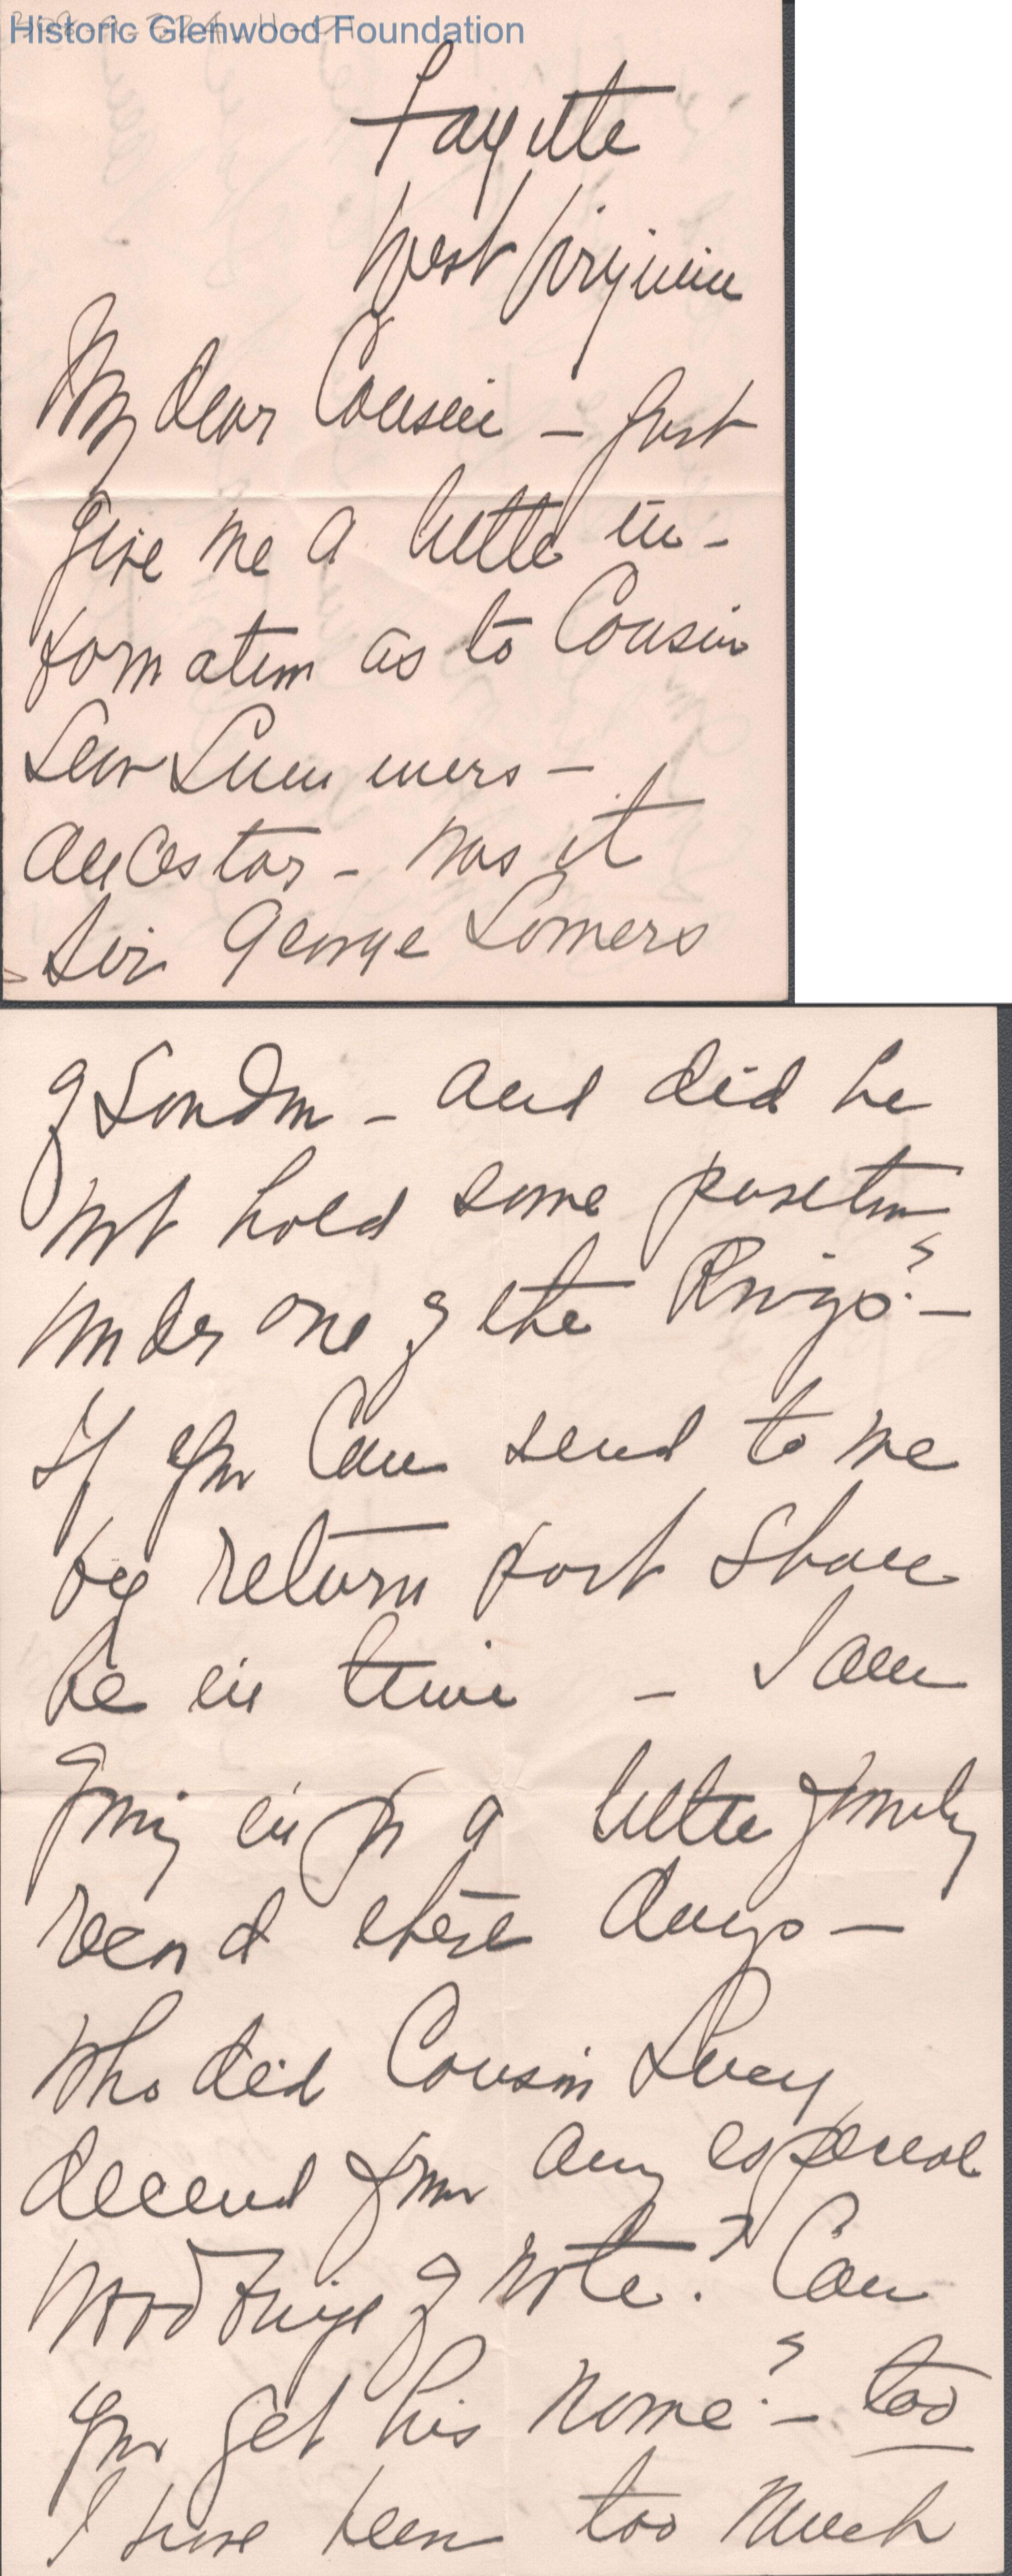 Historic Glenwood Foundation
Fayette
West Virginia
My dear Cousin – Just
give me a little in-
formation as to Cousin
Lew Summers –
ancestor – was it
Sir George Somers
of London – and did he
not hold some position
under one of the Kings? –
If you can send to me
by return post shall
be in time – I am
going in for a little family
record these days –
Who did Cousin Lucy
decend from any especial
Woodbridge of note? Can
you get his name? – too
I have been too much